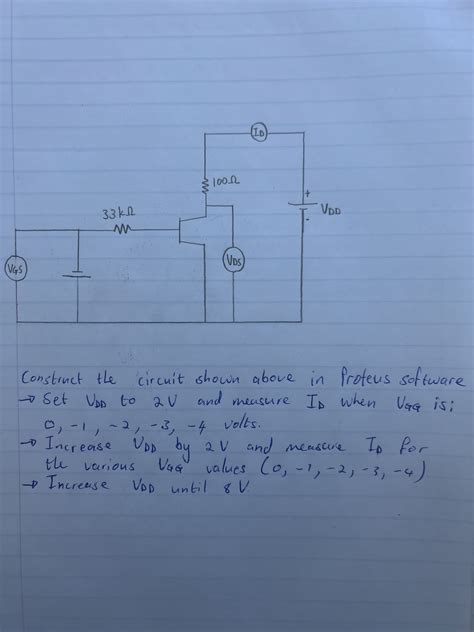 ID
100Ω
+
VDD
-
33kΩ
VGS
VDS
Construct the circuit shown above in Proteus software
→ Set VDD to 2V and measure ID when VGG is;
0, -1, -2, -3, -4 volts.
→ Increase VDD by 2V and measure ID for
the various VGG values (0, -1, -2, -3, -4)
→ Increase VDD until 8V.